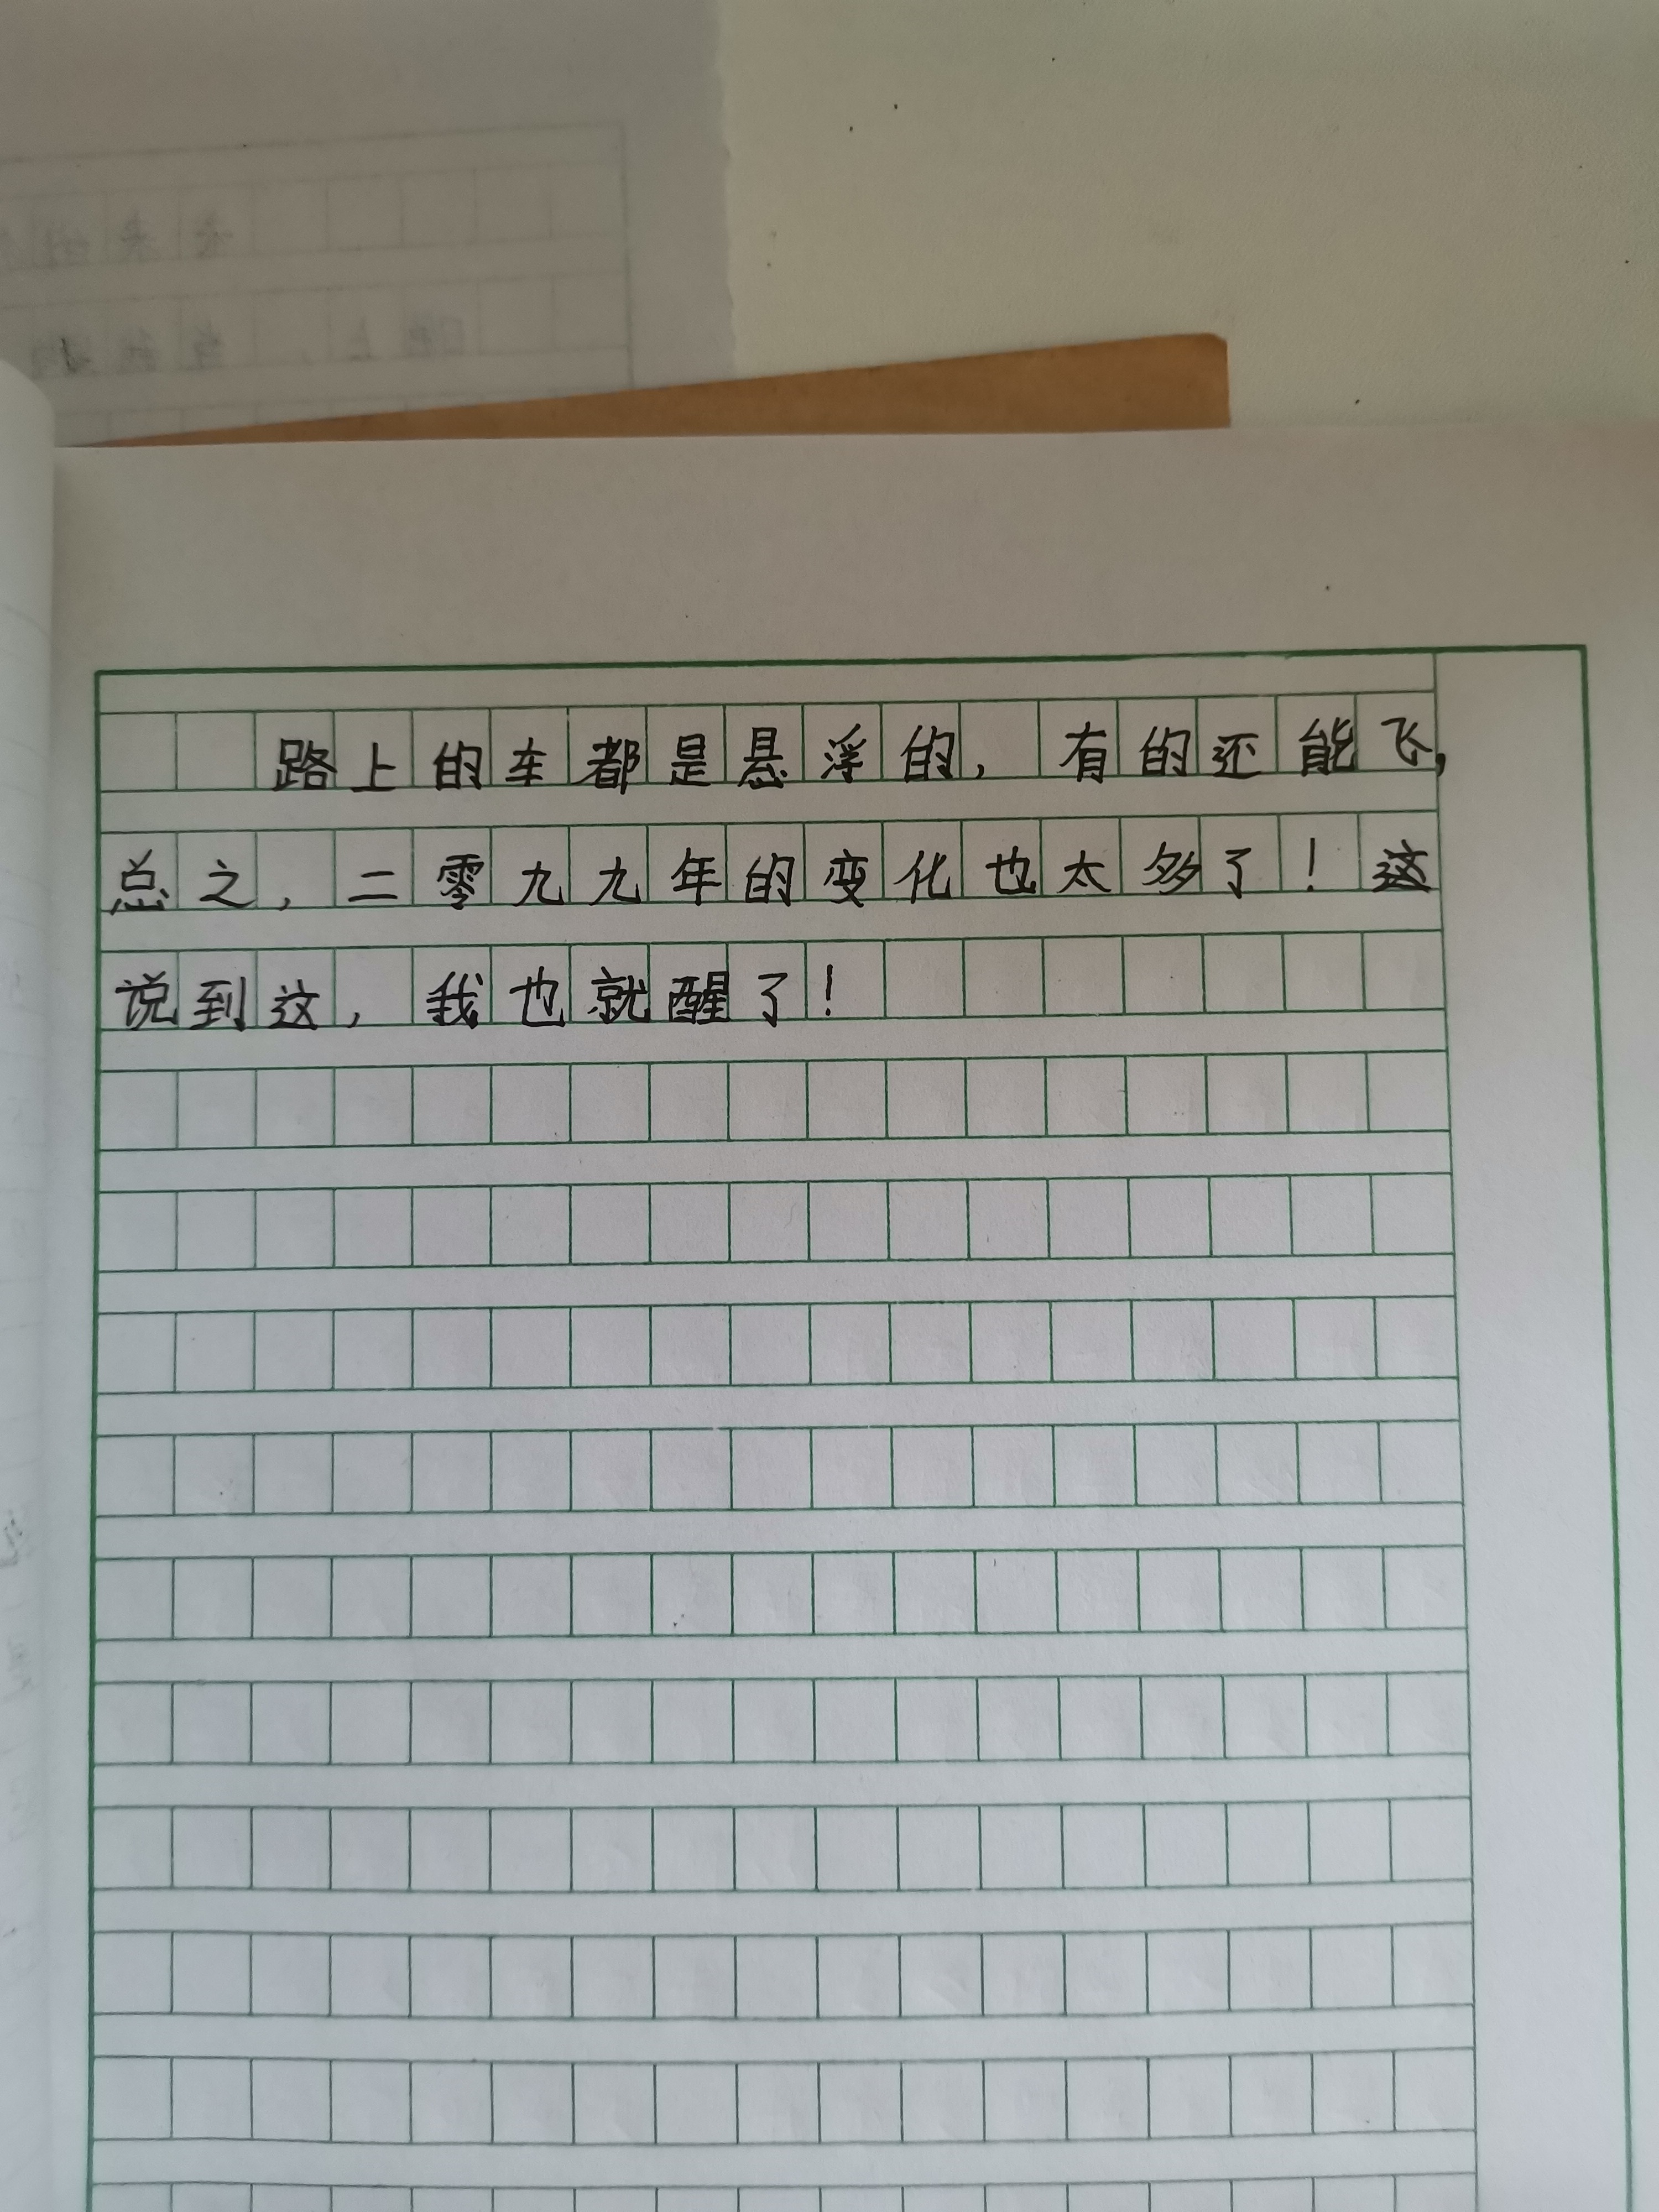 路上的车都是悬浮的，有的还能飞，
总之，二零九九年的变化也太多了！这
说到这，我也就醒了！